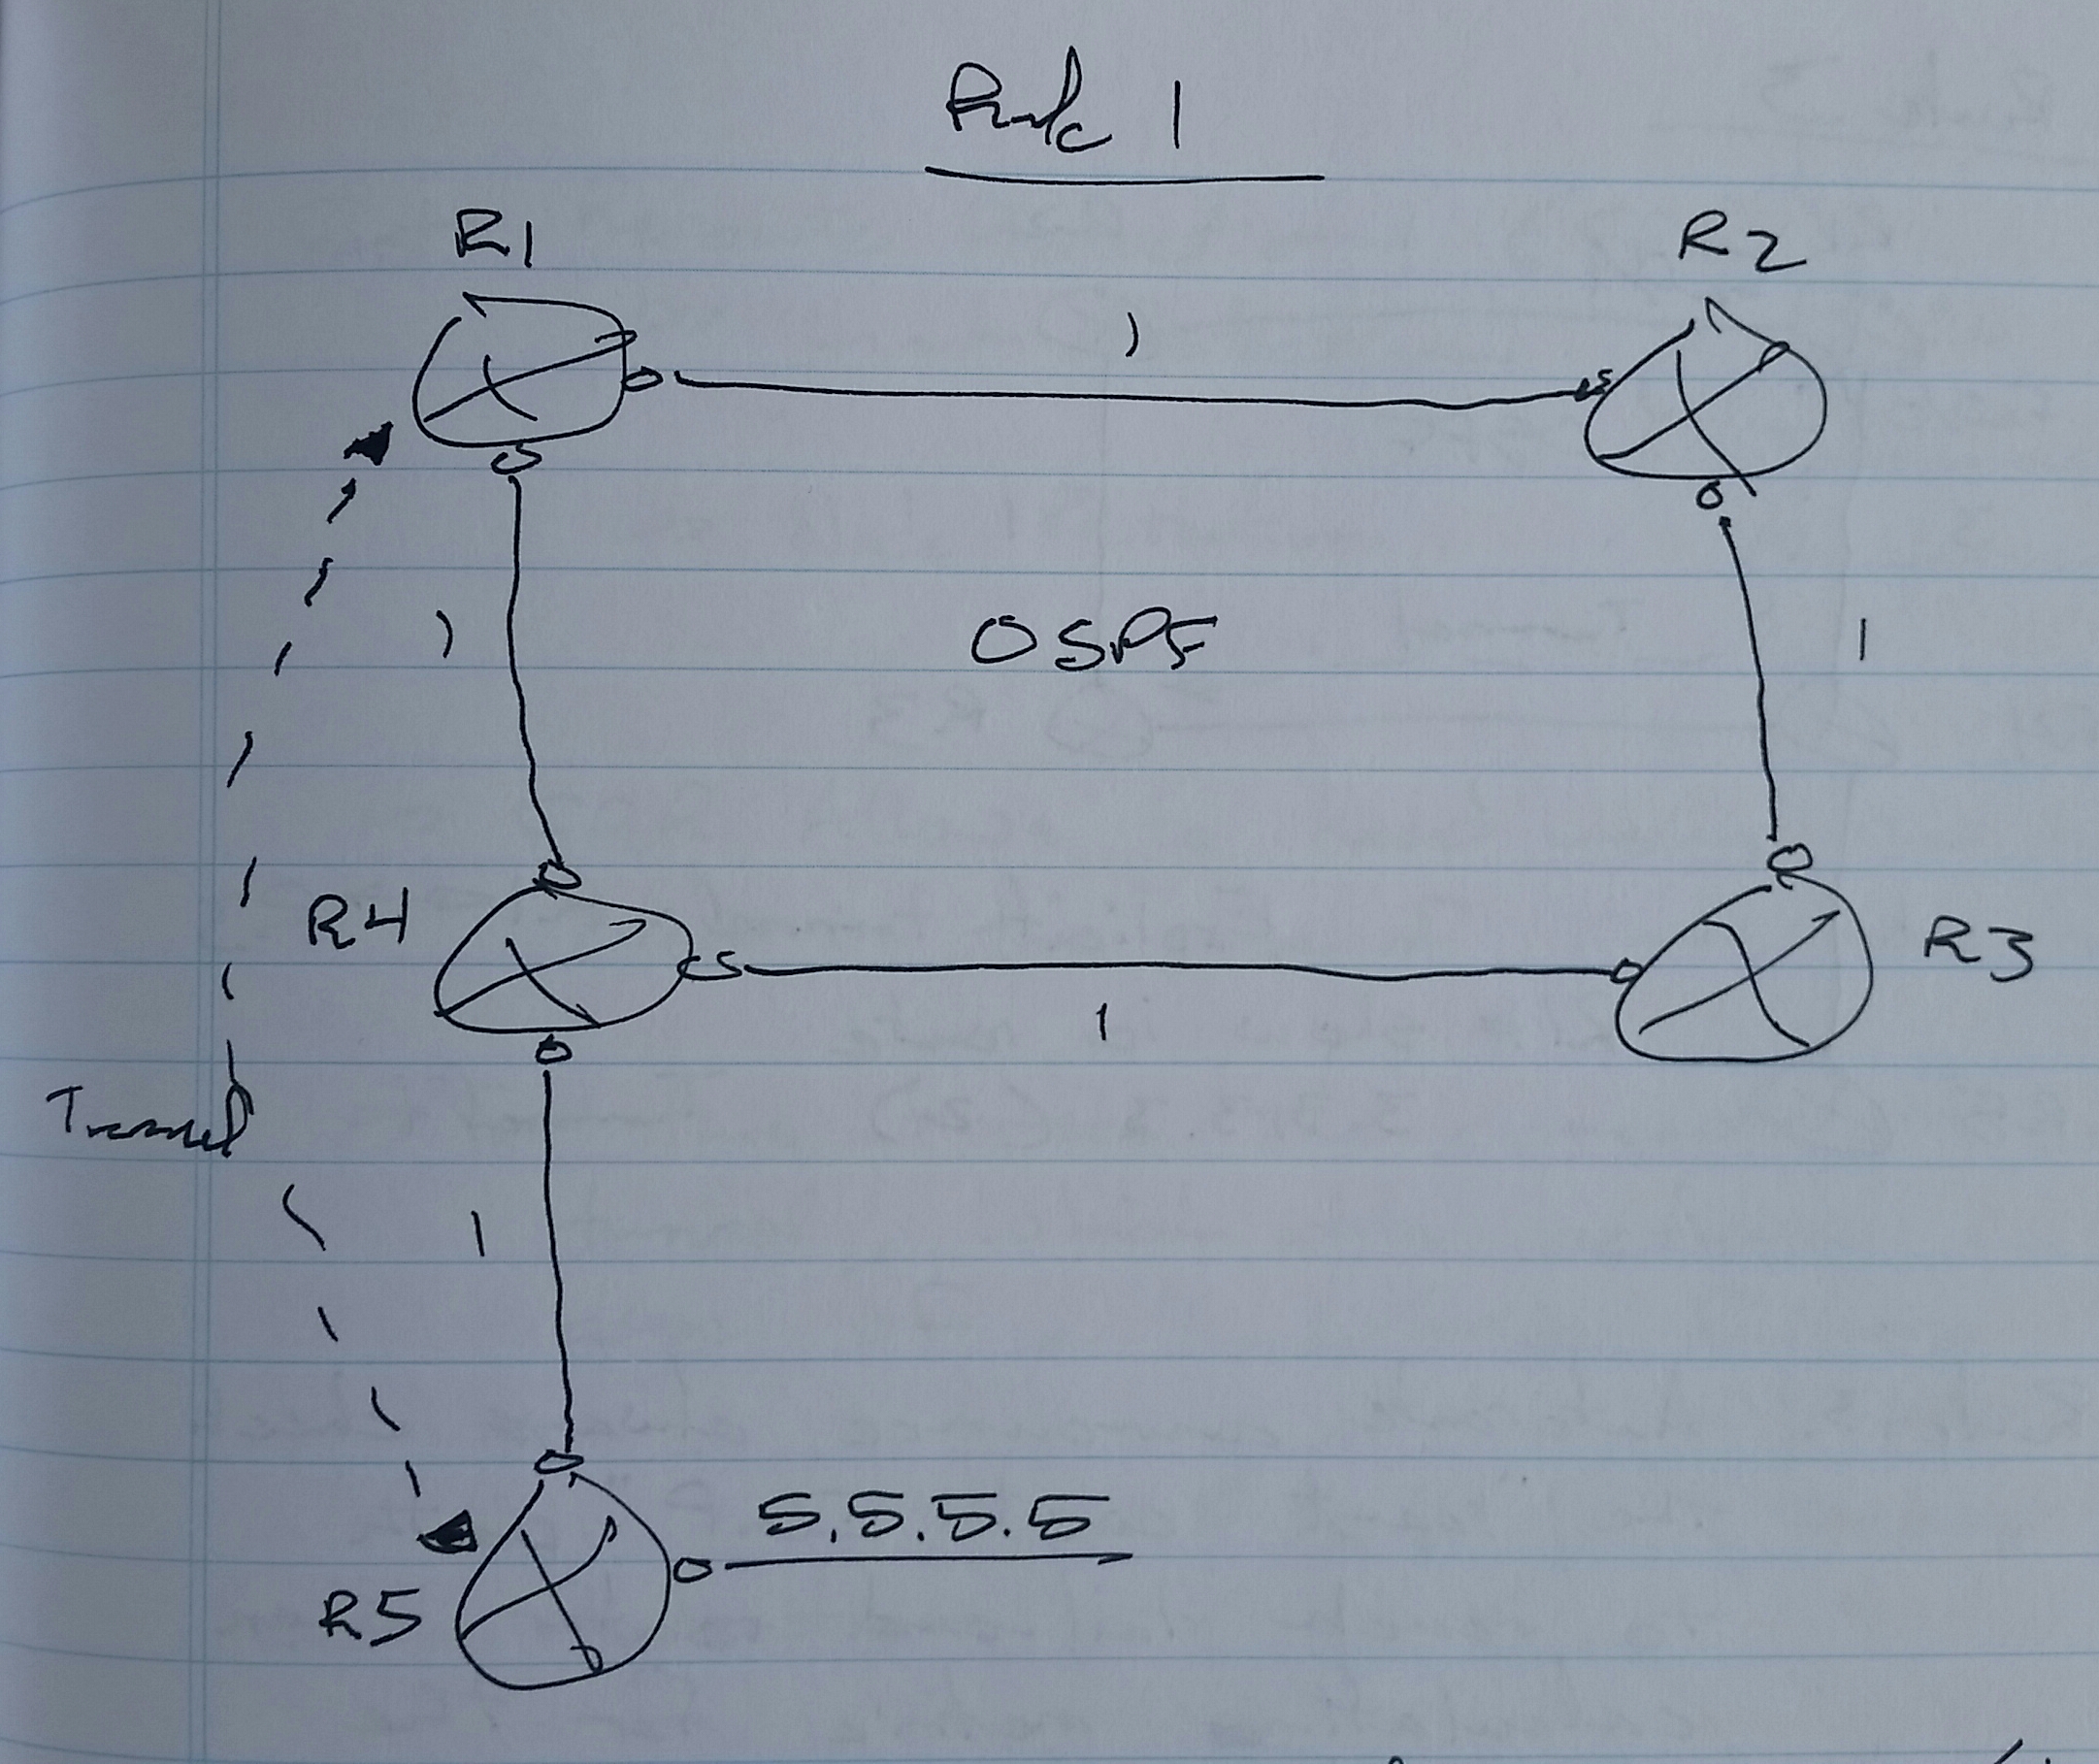 Rule 1
R1
R2
1
1
OSPF
1
R4
R3
1
Tunnel
1
5.5.5.5
R5